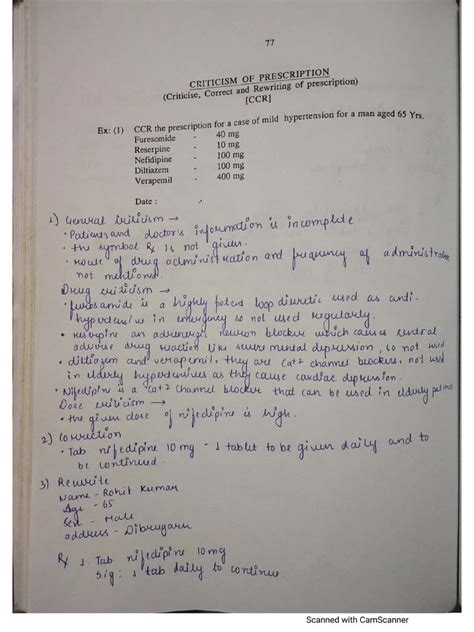 77
CRITICISM OF PRESCRIPTION
(Criticise, Correct and Rewriting of prescription)
[CCR]
Ex: (1) CCR the prescription for a case of mild hypertension for a man aged 65 Yrs.
Furesemide - 40 mg
Reserpine - 10 mg
Nefidipine - 100 mg
Diltiazem - 100 mg
Verapemil - 400 mg
Date :
1) General criticism →
• Patients and doctor's information is incomplete.
• the symbol Rx is not given.
• route of drug administration and frequency of administration
not mentioned.
Drug criticism →
• furosamide is a highly potent loop diuretic used as anti-
hypertensive in emergency so not used regularly.
• reserpine an adrenergic neuron blocker which causes central
adverse drug reaction like severe mental depression, so not used
• diltiazem and verapemil, they are Ca+2 channel blockers, not used
in elderly hypertensives as they cause cardiac depression.
• Nifedipine is a Ca+2 channel blocker that can be used in elderly patients
Dose criticism →
• the given dose of nifedipine is high.
2) Correction
• Tab nifedipine 10 mg - 1 tablet to be given daily and to
be continued.
3) Rewrite
Name - Rohit Kumar
Age - 65
Sex - Male
address - Dibrugarh
Rx 1. Tab nifedipine 10mg
Sig: 1 tab daily to continue
Scanned with CamScanner